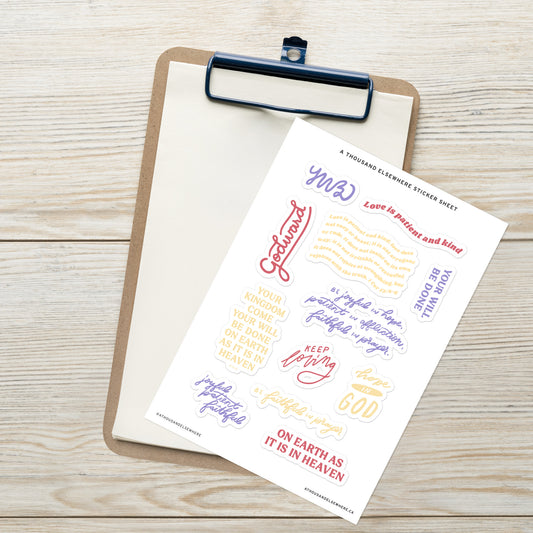 A THOUSAND ELSEWHERE STICKER SHEET
YWBD
Love is patient and kind
Godward
Love is patient and kind; love
YOUR WILL
BE DONE
BE joyful IN hope,
patient IN affliction,
faithful IN prayer.
YOUR
KINGDOM
COME
YOUR WILL
BE DONE
ON EARTH
AS IT IS IN
HEAVEN
KEEP
loving
hope
GOD
joyful
patient
faithful
BE faithful in prayer.
ON EARTH AS
IT IS IN HEAVEN
@ATHOUSANDELSEWHERE
ATHOUSANDELSEWHERE.CA